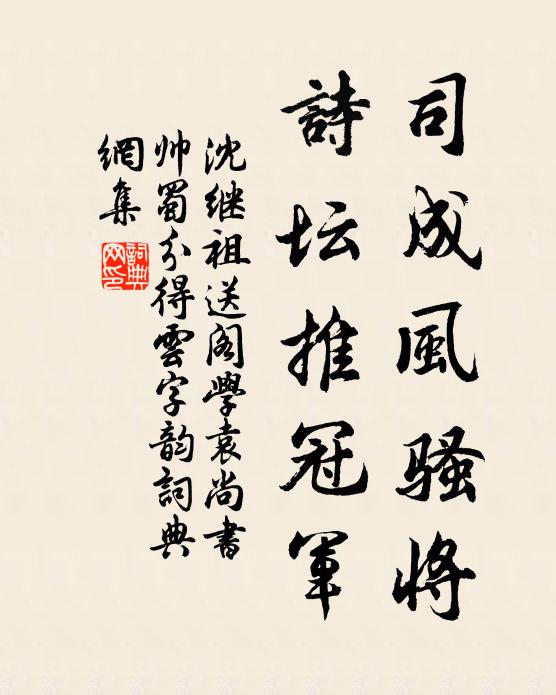 司成風骚将
詩坛推冠軍
沈继祖送阁學袁尚書
帅蜀分得雲字韵詞典
網集
詞典網印